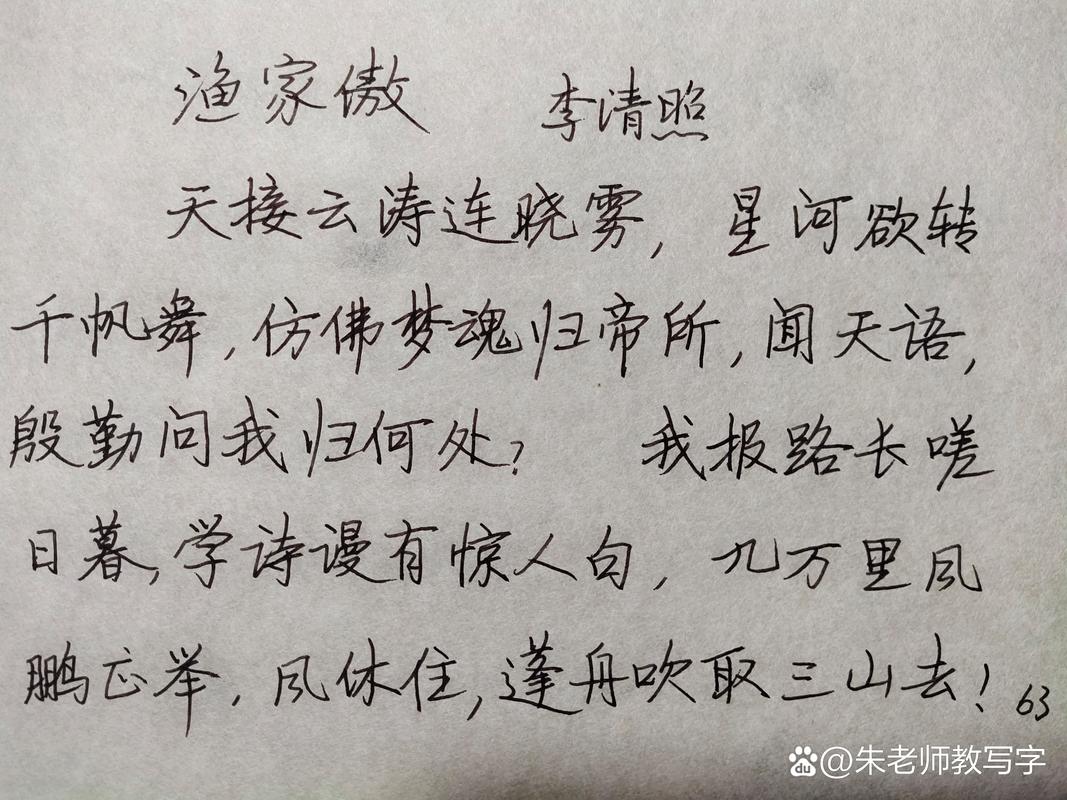 渔家傲 李清照
天接云涛连晓雾,星河欲转
千帆舞,仿佛梦魂归帝所,闻天语,
殷勤问我归何处? 我报路长嗟
日暮,学诗谩有惊人句,九万里风
鹏正举.风休住,蓬舟吹取三山去!63
du @朱老师教写字